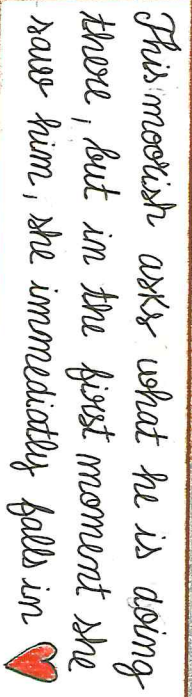 This moorish asks what he is doing
there, but in the first moment she
saw him, she immediatly falls in ❤